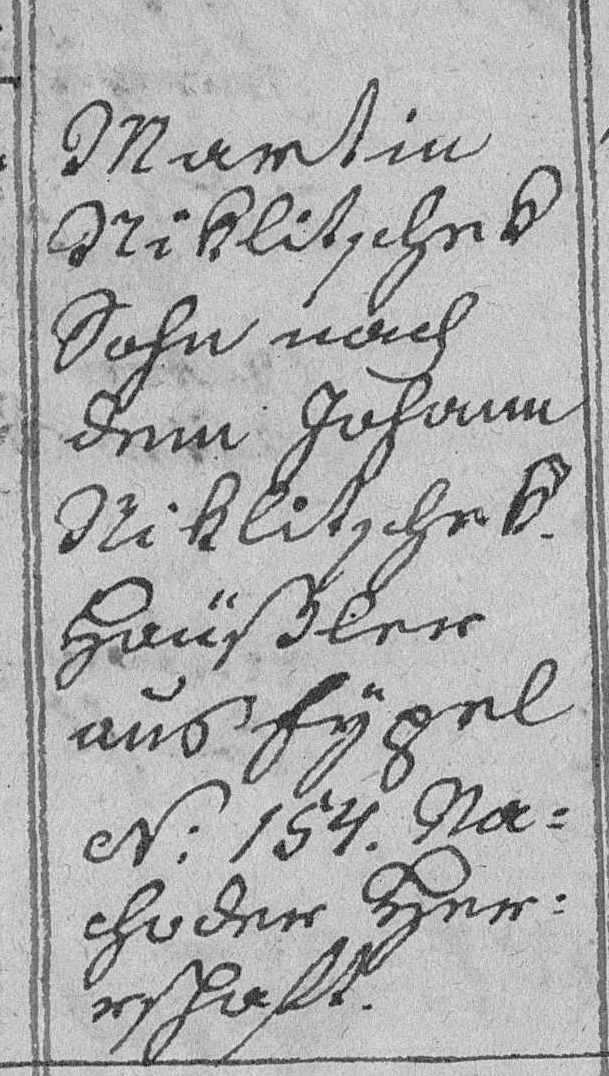 Martin
Niklitschek
Sohn nach
dem Johann
Niklitschek.
Häußler
aus Eÿpel
N: 154. Na=
choder Her=
rschaft.